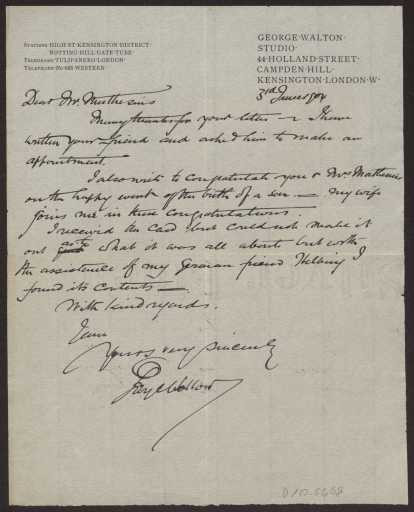 STATIONS HIGH ST KENSINGTON DISTRICT·
NOTTING HILL GATE TUBE·
TELEGRAMS·TULIPANERO·LONDON·
TELEPHONE·No 685·WESTERN·
GEORGE·WALTON·
STUDIO·
44·HOLLAND·STREET·
CAMPDEN·HILL·
KENSINGTON·LONDON·W·
3rd June 1904
Dear Mr. Muthesius
Many thanks for your letter — I have
written your friend and asked him to make an
appointment.
I also wish to congratulate you & Mrs Muthesius
on the happy event of the birth of a son — my wife
joins me in these congratulations.
I received the card but could not make it
out as to what it was all about but with
the assistance of my German friend Helbing I
found its contents —.
With kind regards.
I am
Yours very sincerely
George Walton